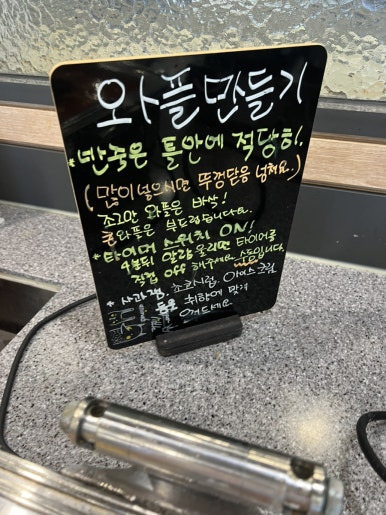 와플만들기
* 반죽은 틀안에 적당히.
(많이넣으시면 뚜껑닫음 넘쳐요.)
조그만 와플은 바삭!
큰와플은 부드럽습니다.
* 타이머 스위치 ON!
4분뒤 알람 울리면 타이머를
직접 off 해주세요. 수동입니다.
* 사과잼, 초코시럽, 아이스크림
등은 취향에 맞게